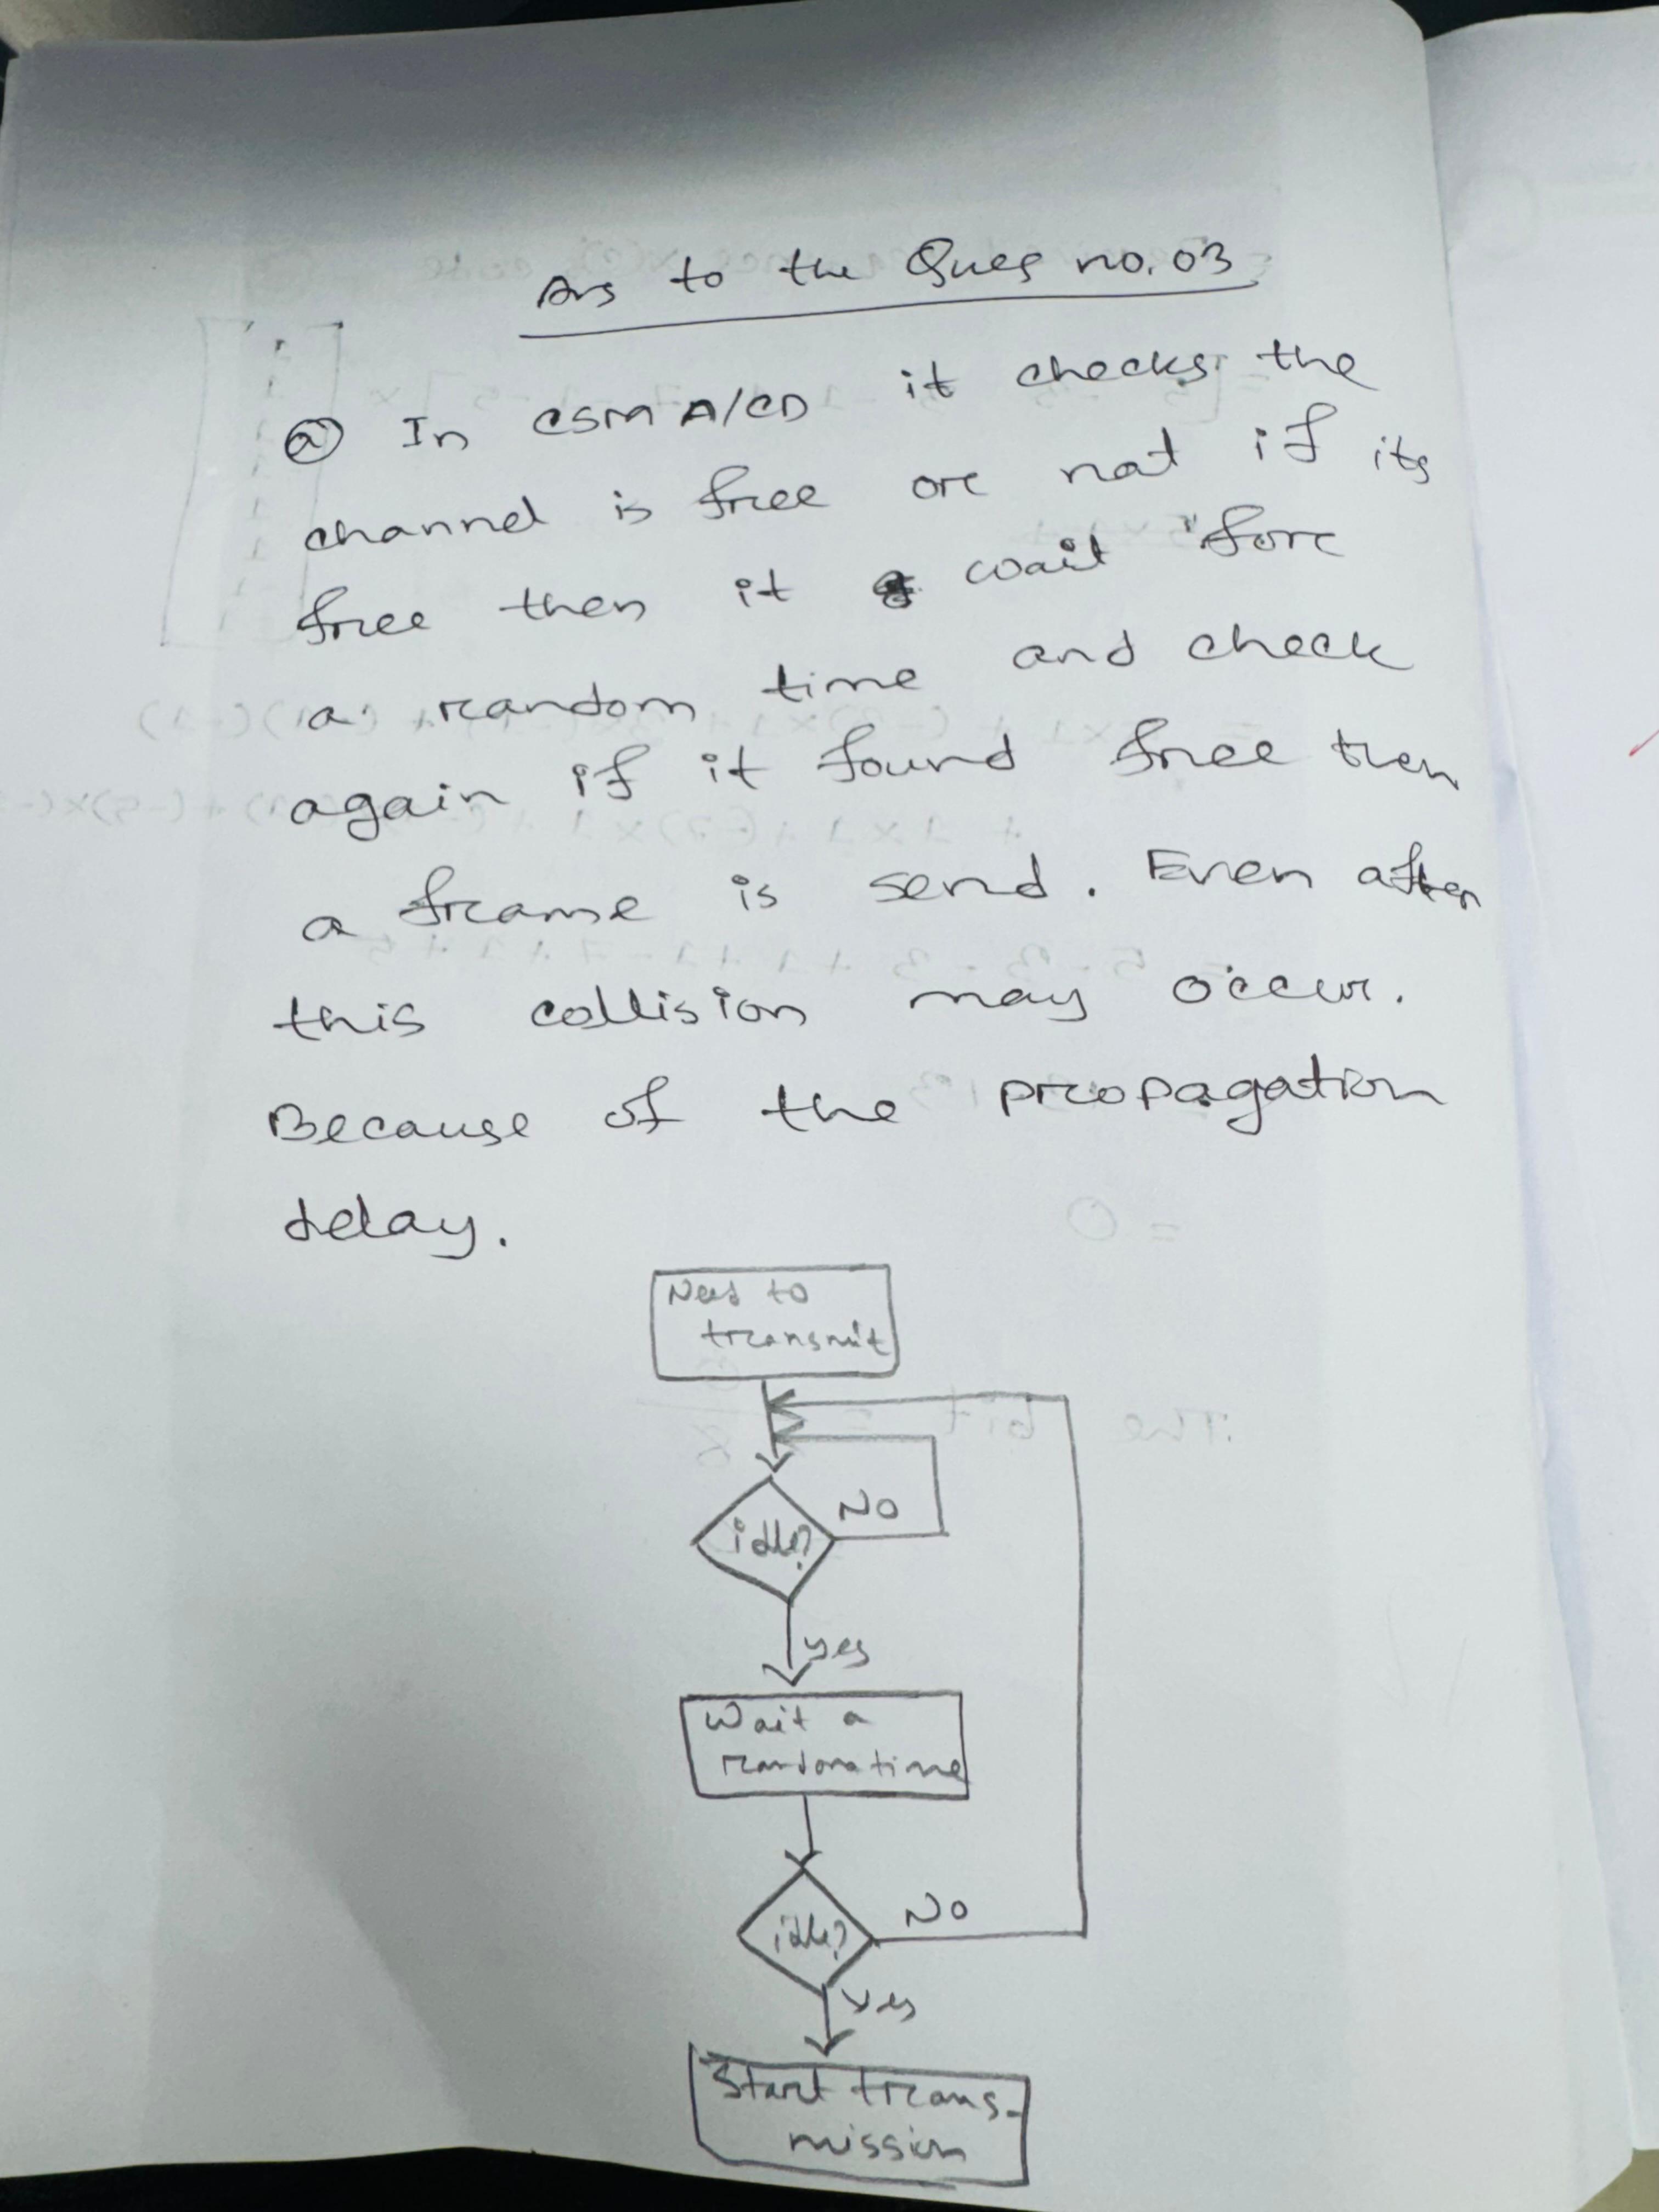 Ans to the Ques no. 03
ⓐ In CSMA/CD it checks the
channel is free or not if its
free then it wait for
a random time and check
again if it found free then
a frame is send. Even after
this collision may occur.
Because of the propagation
delay.
Need to
transmit
idle?
No
yes
Wait a
random time
idle?
No
yes
Start trans-
mission